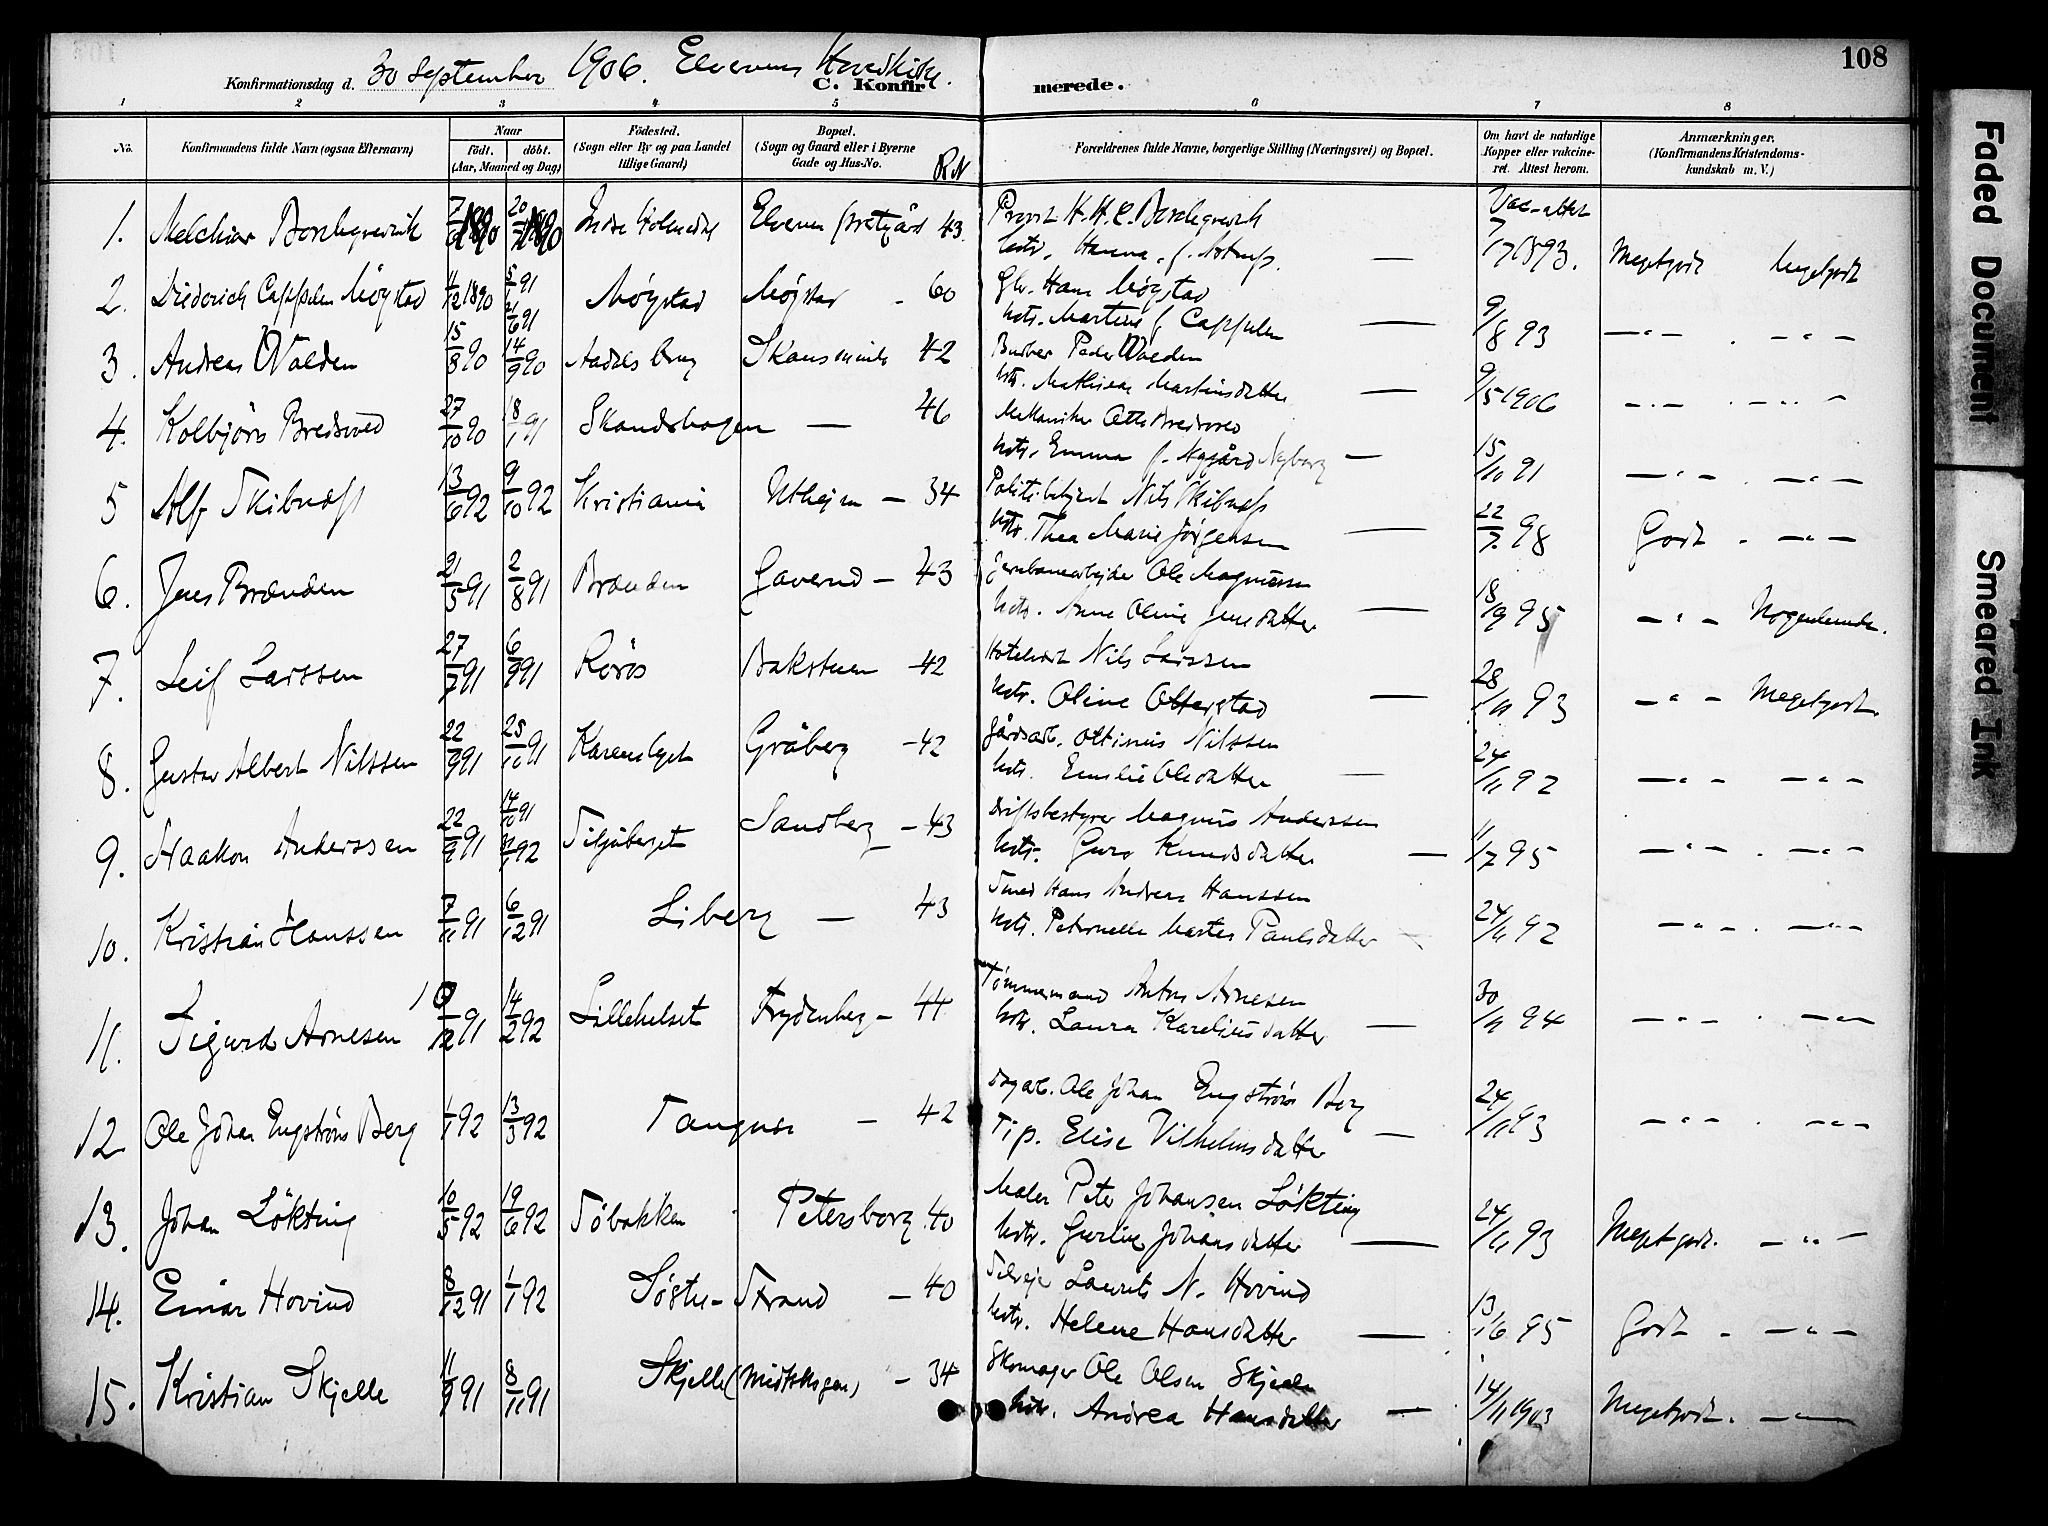 108
Konfirmationsdag d. 30 September 1906. Elverum Hovedkirke.
C. Konfirmerede.
1 2 3 4 5 6 7 8
No. Konfirmandens fulde Navn (ogsaa Efternavn) Naar Født. døbt. (Aar, Maaned og Dag) Fødested. (Sogn eller By og paa Landet tillige Gaard) Bopæl. (Sogn og Gaard eller i Byerne Gade og Hus-No. R.N Forældrenes fulde Navne, borgerlige Stilling (Næringsvei) og Bopæl. Om havt de naturlige Kopper eller vaccineret. Attest herom. Anmærkninger. (Konfirmandens Kristendomskundskab m. V.)
1. Melchior 7/6 1890 20/7 1890 Elverum prstgård 43. Provst H. H. C.
Hanna f. Vac-attst 7/7 1893. Megetgodt Megetgodt
2. Diderich Cappelen Møystad 11/12 1890 5/5 91 Møystad Møystad - 60 Hans Møystad
Martine f. Cappelen — 9/8 93 — " — . — " —
3. Andreas Volden 15/8 90 14/9 90 42 Peder Volden
Mathea Martinsdatter — 9/5 1906 — " — . — " —
4. Kolbjörn Bredsved 27/10 90 18/1 91 Skandshagen — 46 Mekaniker Otto Bredsved
Hstr. Emma f. Nygård Nyborg — 15/10 91 — " — . — " —
5 Alf Skibnæss 13/6 92 9/10 92 Kristiania Utheim — 34 Politibetjent Nils Skibnæss
Hstr. Thea Marie Jörgensen — 22/7 98 Godt . — " —
6. Jens Brænden 21/5 91 2/8 91 Brænden Gaverud — 43 Jernbanearbejder Ole Magnussen
Hstr. Anne Oline Jensdatter — 18/9 95 — " — Nogenlunde.
7. Leif Larssen 27/7 91 6/9 91 Rörös Bakstuen — 42 Hotelvært Nils Larssen
Hstr. Oline Otterstad — 28/11 93 — " — Megetgodt.
8. Gustav Albert Nilssen 22/9 91 25/10 91 Karenslyst Gråberg — 42 Gårdsarb. Ottinius Nilssen
Hstr. Emilie Olesdatter — 24/11 92 — " — — " —
9. Haakon Anderssen 22/9 91 14/10 91 Sandberg — 43 Driftsbestyrer Magnus Anderssen
Hstr. Guro Knudsdatter — 11/7 95 — " — . — " —
10. Kristian Hanssen 7/11 91 6/12 91 Liberg — 43 Smed Hans Andreas Hanssen
Hstr. Peternelle Martea Paulsdatter — 24/11 92 — " — . — " —
11. Sigurd Arnesen 10/12 91 14/2 92 Lillehelset Frydenberg — 44 Tømmermand Anton Arnesen
Hstr. Laura Kareliusdatter — 30/11 94 — " — . — " —
12 Ole Johan Engström Berg 1/1 92 13/3 92 Tangnes — 42 Dagarb. Ole Johan Engström Berg
Tip. Elise Vilhelmsdatter — 24/11 93 — " — . — " —
13. Johan Lökting 10/5 92 19/6 92 Söbakken Petersborg 40 Maler Peter Johansen Lökting
Hstr. Gurline Johansdatter — 24/11 93 Megetgodt. — " —
14. Einar Hovind 8/12 91 1/1 92 Söstu - Strand — 40 Laurits N. Hovind
Hstr. Helene Hansdatter — 13/6 95 Godt . — " —
15. Kristian Skjelle 11/9 91 8/11 91 Skjelle (Midtskogen) — 34 Skomager Ole Olsen Skjelle
Hstr. Andrea Hansdatter — 14/11 1903 Megetgodt. — " —
Faded Document
Smeared Ink